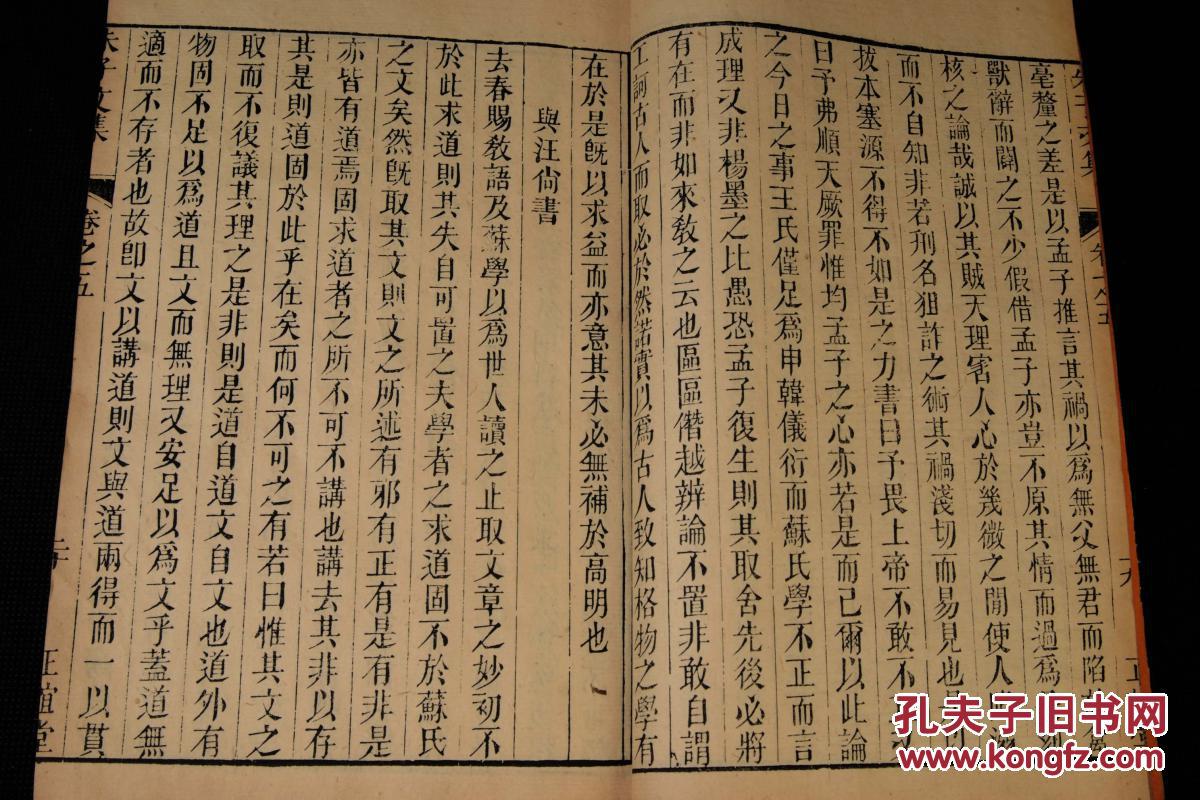 毫釐之差是以孟子推言其禍以為無父無君而陷
獸辭而闢之不少假借孟子亦豈不原其情而過為
核之論哉誠以其賊天理害人心於幾微之間使人
而不自知非若刑名狙詐之術其禍淺切而易見也
拔本塞源不得不如是之力書曰予畏上帝不敢不
曰予弗順天厥罪惟均孟子之心亦若是而已爾以此論
之今日之事王氏僅足為申韓儀衍而蘇氏學不正而言
成理又非楊墨之比愚恐孟子復生則其取舍先後必將
有在而非如來教之云也區區僭越辨論不置非敢自謂
工訶古人而取必於然諾實以為古人致知格物之學有
在於是既以求益而亦意其未必無補於高明也
與汪尙書
去春賜教語及蘇學以為世人讀之止取文章之妙初不
於此求道則其失自可置之夫學者之求道固不於蘇氏
之文矣然既取其文則文之所述有邪有正有是有非是
亦皆有道焉固求道者之所不可不講也講去其非以存
其是則道固於此乎在矣而何不可之有若曰惟其文之
取而不復議其理之是非則是道自道文自文也道外有
物固不足以爲道且文而無理又安足以爲文乎蓋道無
適而不存者也故卽文以講道則文與道兩得而一以貫
朱子文集
卷之五
二十
正誼堂
孔夫子旧书网
www.kongfz.com